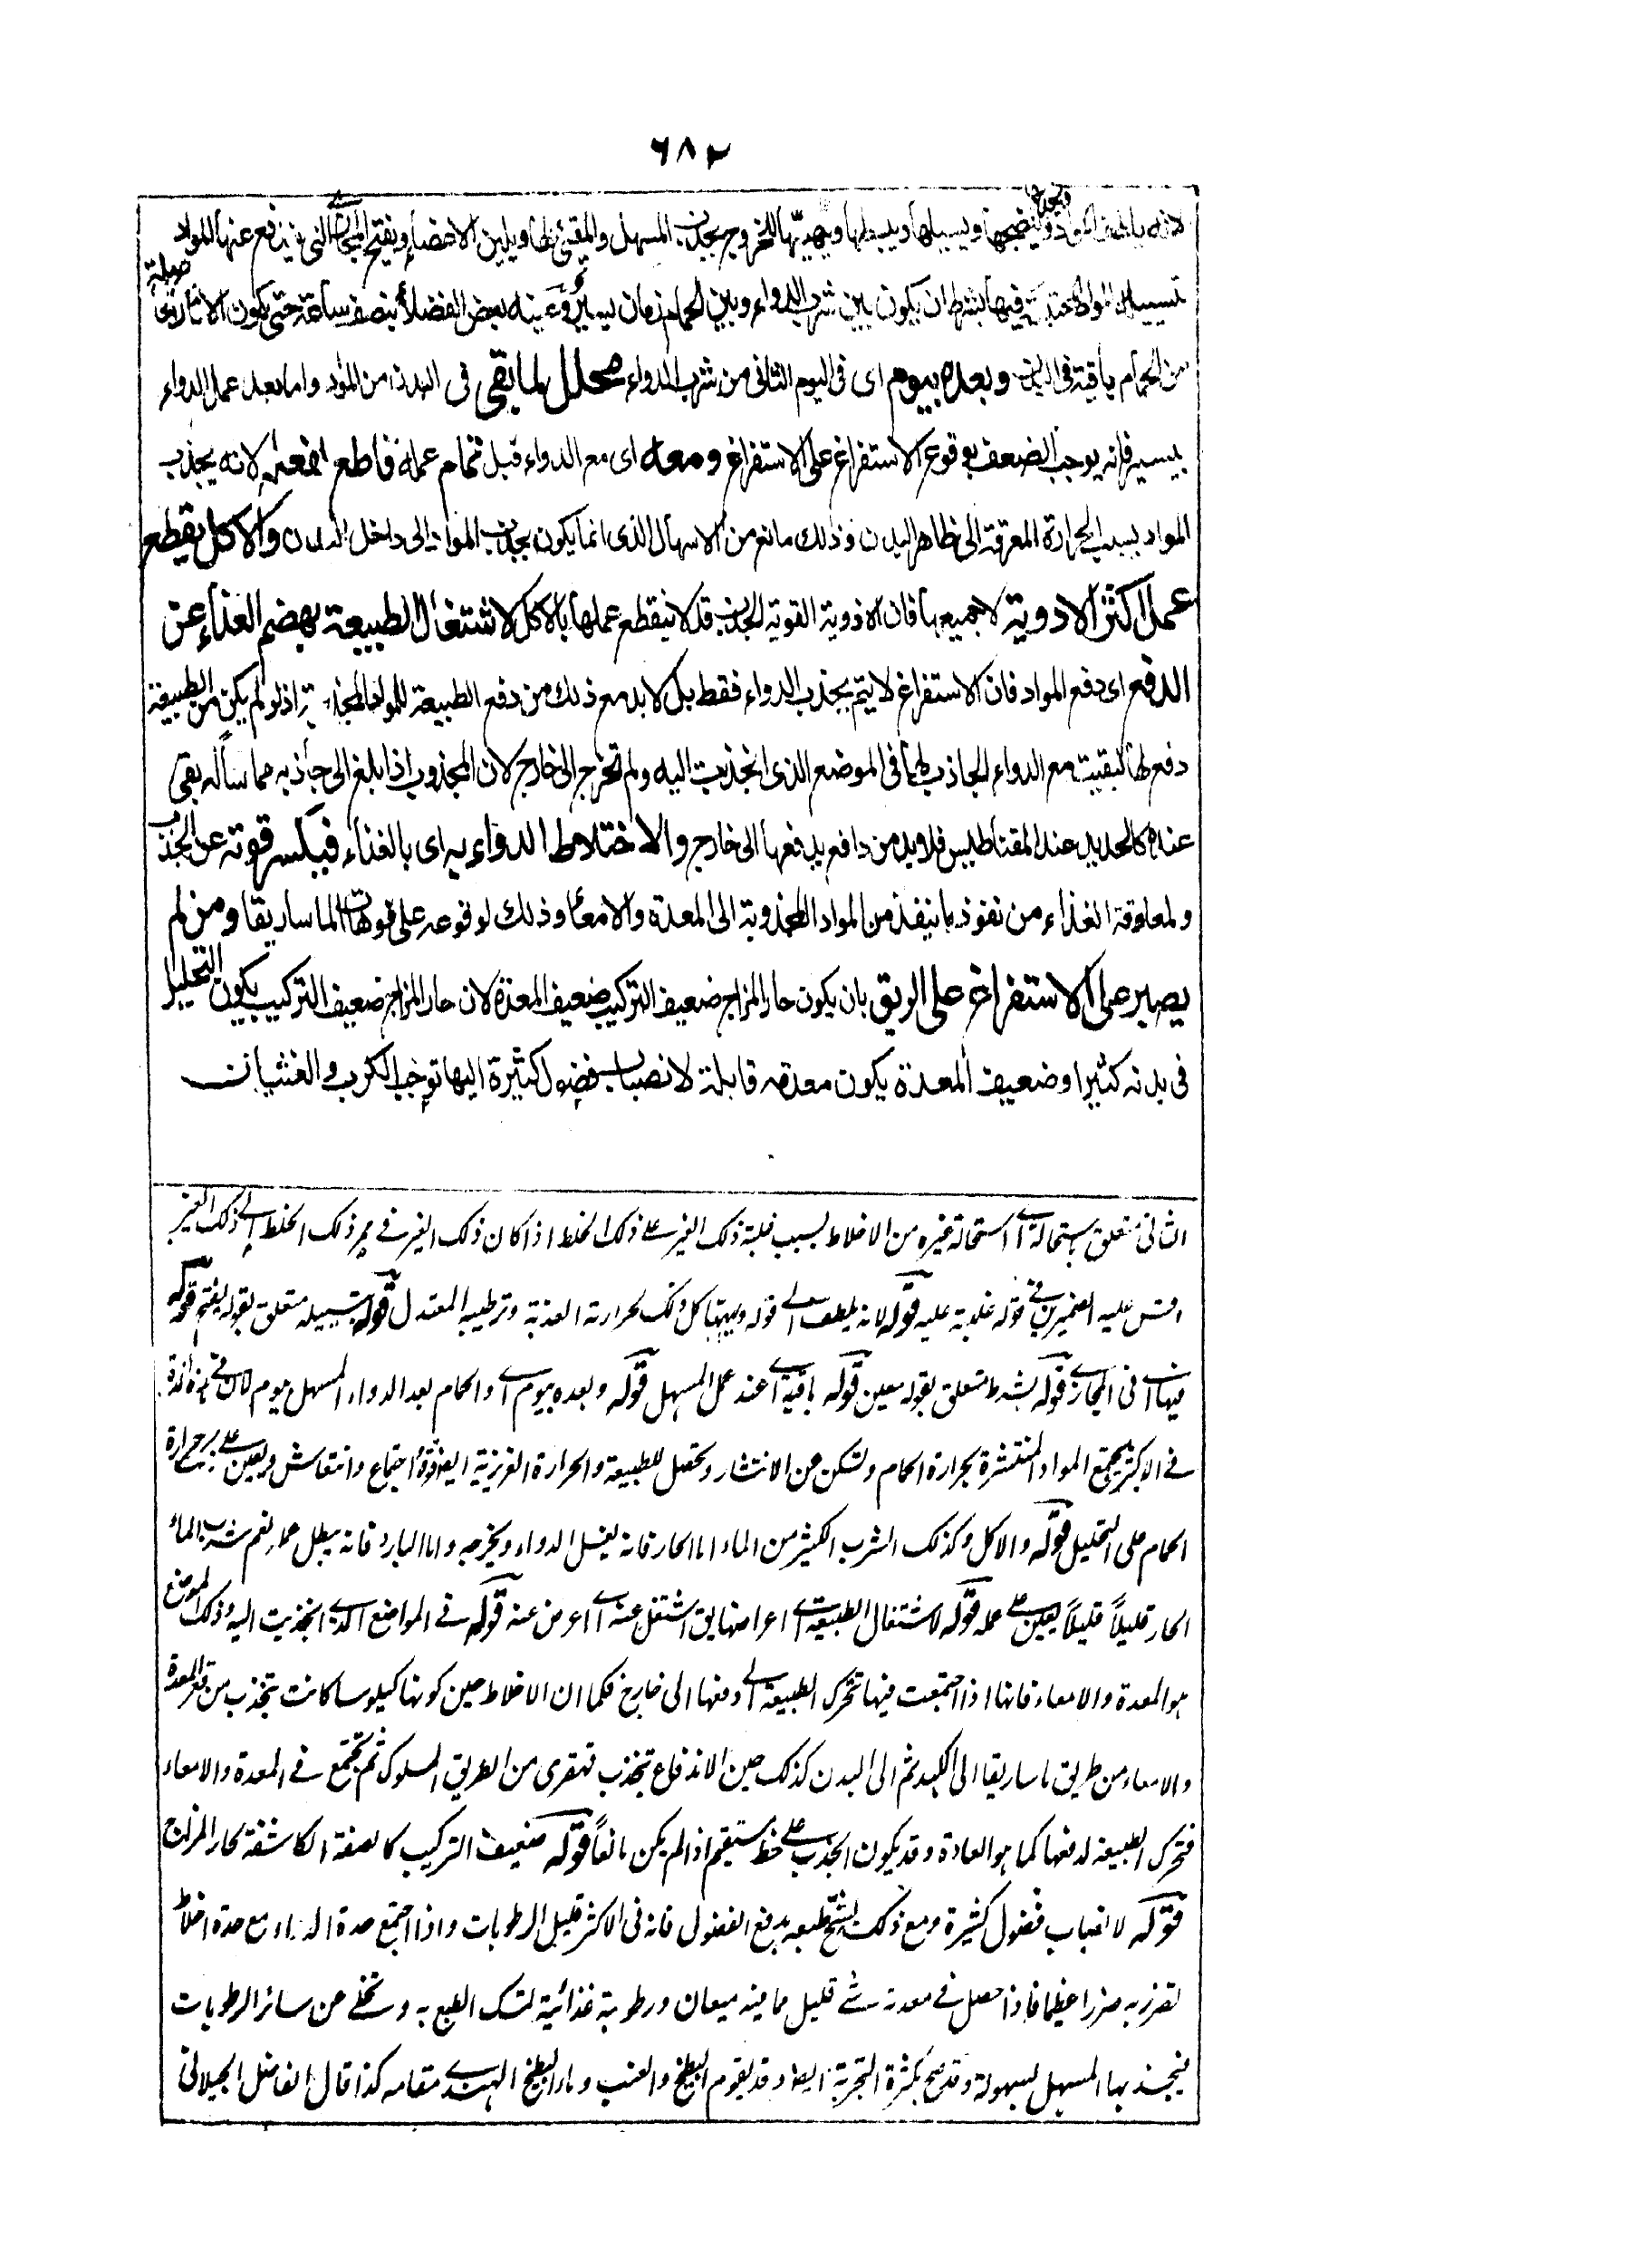 ٦٨٢
لانه يلطف المواد وينضجها ويسيلها ويبسطها ويهيئها للخروج بجذب المسهل والمقيئ لها ويلين الاعضاء ويفتح المجارى التى يندفع عنها المواد
تسييل المواد المحتبسة فيها بشرط ان يكون بين شرب الدواء وبين الحمام زمان يسير وعينه بعض الفضلاء بنصف ساعة حتى يكون الآثار
من الحمام باقية فى البدن وبعده بيوم اى فى اليوم الثانى من شرب الدواء محلل لما بقى فى البدن من المواد واما بعد عمل الدواء
بيسير فانه يوجب الضعف بوقوع الاستفراغ على الاستفراغ ومعه اى مع الدواء قبل تمام عمله قاطع لفعله لانه يجذب
المواد بسبب الحرارة المعرقة الى ظاهر البدن وذلك مانع من الاسهال الذى انما يكون بجذب المواد الى داخل البدن والاكل يقطع
عمل اكثر الادوية لا جميعها فان الادوية القوية الجذب قد لا ينقطع عملها بالاكل لاشتغال الطبيعة بهضم الغذاء عن
الدفع اى دفع المواد فان الاستفراغ لا يتم بجذب الدواء فقط بل لا بد مع ذلك من دفع الطبيعة للمواد المنجذبة اذ لو لم يكن من الطبيعة
دفع لها لبقيت مع الدواء الجاذب لها فى الموضع الذى انجذبت اليه ولم تخرج الى خارج لان المجذوب اذا بلغ الى جاذبه مماسا له بقى
عنده كالحديد عند المقناطيس فلا بد من دافع يدفعها الى خارج والاختلاط الدواء به اى بالغذاء فيكسر قوته عن الجذب
ولمعاوقة الغذاء من نفوذ ما ينفذ من المواد المجذوبة الى المعدة والامعاء وذلك لوقوعه على فوهات الماساريقا ومن لم
يصبر على الاستفراغ على الريق بان يكون حار المزاج ضعيف التركيب ضعيف المعدة لان حار المزاج ضعيف التركيب يكون التحليل
فى بدنه كثيرا وضعيف المعدة يكون معدته قابلة لانصباب فضول كثيرة اليها توجب الكرب والغثيان
الثانى متعلق باستحالة اى استحالة غيره من الاخلاط بسبب غلبة ذلك الغير على ذلك الخلط اذا كان ذلك الغير فى ممر ذلك الخلط الى ذلك الغير
وقس عليه الضميرين فى قوله غلبة عليه قوله لانه يلطف الى قوله ويهيئها كل ذلك لحرارته العذبة وترطيبه المعتدل قوله بتسييله متعلق بقوله يفتح قوله
فيها اى فى المجارى قوله بشرط متعلق بقوله معين قوله باقية اى عند عمل المسهل قوله وبعده بيوم اى والحمام بعد الدواء المسهل بيوم لان فى هذه المدة
فى الاكثر يجتمع المواد المنتشرة بحرارة الحمام وتسكن من الانتشار وتحصل للطبيعة والحرارة الغريزية ايضا قوة اجتماع وانتعاش ويعين على حرارة
الحمام على التحليل قوله والاكل وكذلك الشرب الكثير من الماء اما الحار فانه يغسل الدواء ويخرجه واما البارد فانه يبطل عمله نعم شرب الماء
الحار قليلاً قليلاً يعين على عمله قوله لاشتغال الطبيعة اى اعراضها يق اشتغل عنه اى اعرض عنه قوله فى المواضع الذى انجذبت اليه وذلك الموضع
هو المعدة والامعاء فانها اذا اجتمعت فيها تحرك الطبيعة الى دفعها الى خارج فكما ان الاخلاط حين كونها كيلوسا كانت تنجذب من قعر المعدة
والامعاء من طريق ماساريقا الى الكبد ثم الى البدن كذلك حين الاندفاع تنجذب قهقرى من الطريق المسلوك ثم تجتمع فى المعدة والامعاء
فتحرك الطبيعة لدفعها كما هو العادة وقد يكون الجذب على خط مستقيم اذا لم يكن مانعاً قوله ضعيف التركيب كالصفة الكاشفة لحار المزاج
قوله لانصباب فضول كثيرة ومع ذلك يشح طبعه بدفع الفضول فانه فى الاكثر قليل الرطوبات واذا اجتمع حدة الدواء مع حدة اخلاط
تضرر به ضررا عظيما فاذا حصل فى معدته شئ قليل مما فيه ميعان ورطوبة غذائية تمسك الطبع به وتخلى عن سائر الرطوبات
فيجذبها المسهل بسهولة وقد صح بكثرة التجربة ايضا وقد يقوم البطيخ والعنب وماء البطيخ الهندى مقامه كذا قال الفاضل الجيلانى